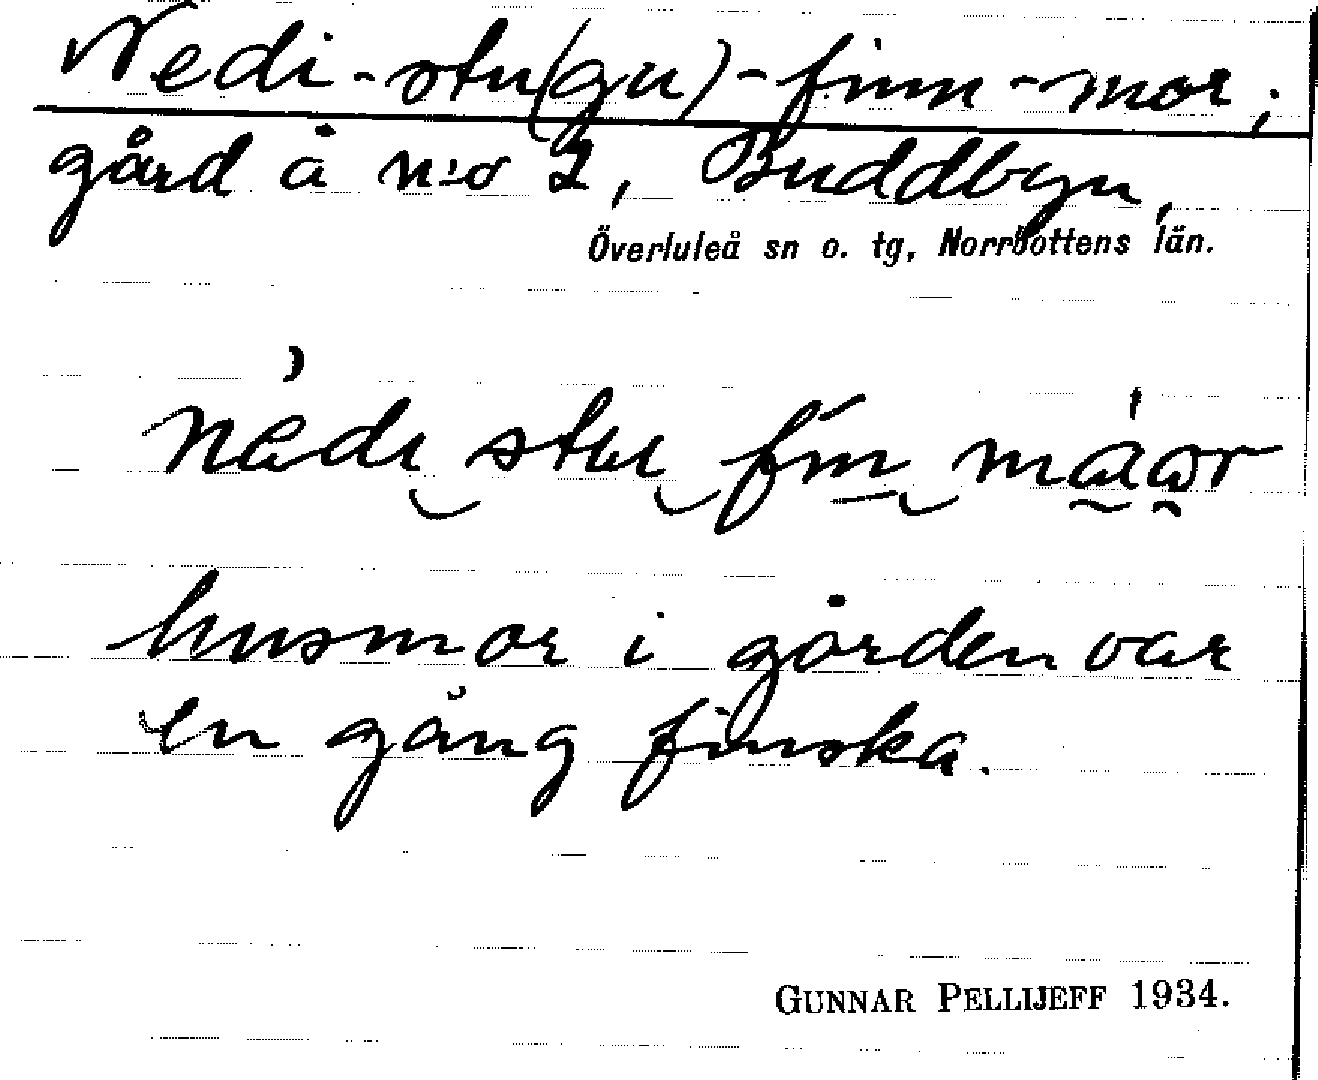 Nedi-stu(gu)-finn-mor;
gård å n:o 2, Buddbyn,
Överluleå sn o. tg, Norrbottens län.
husmor i gården var
en gång finska.
GUNNAR PELLIJEFF 1934.